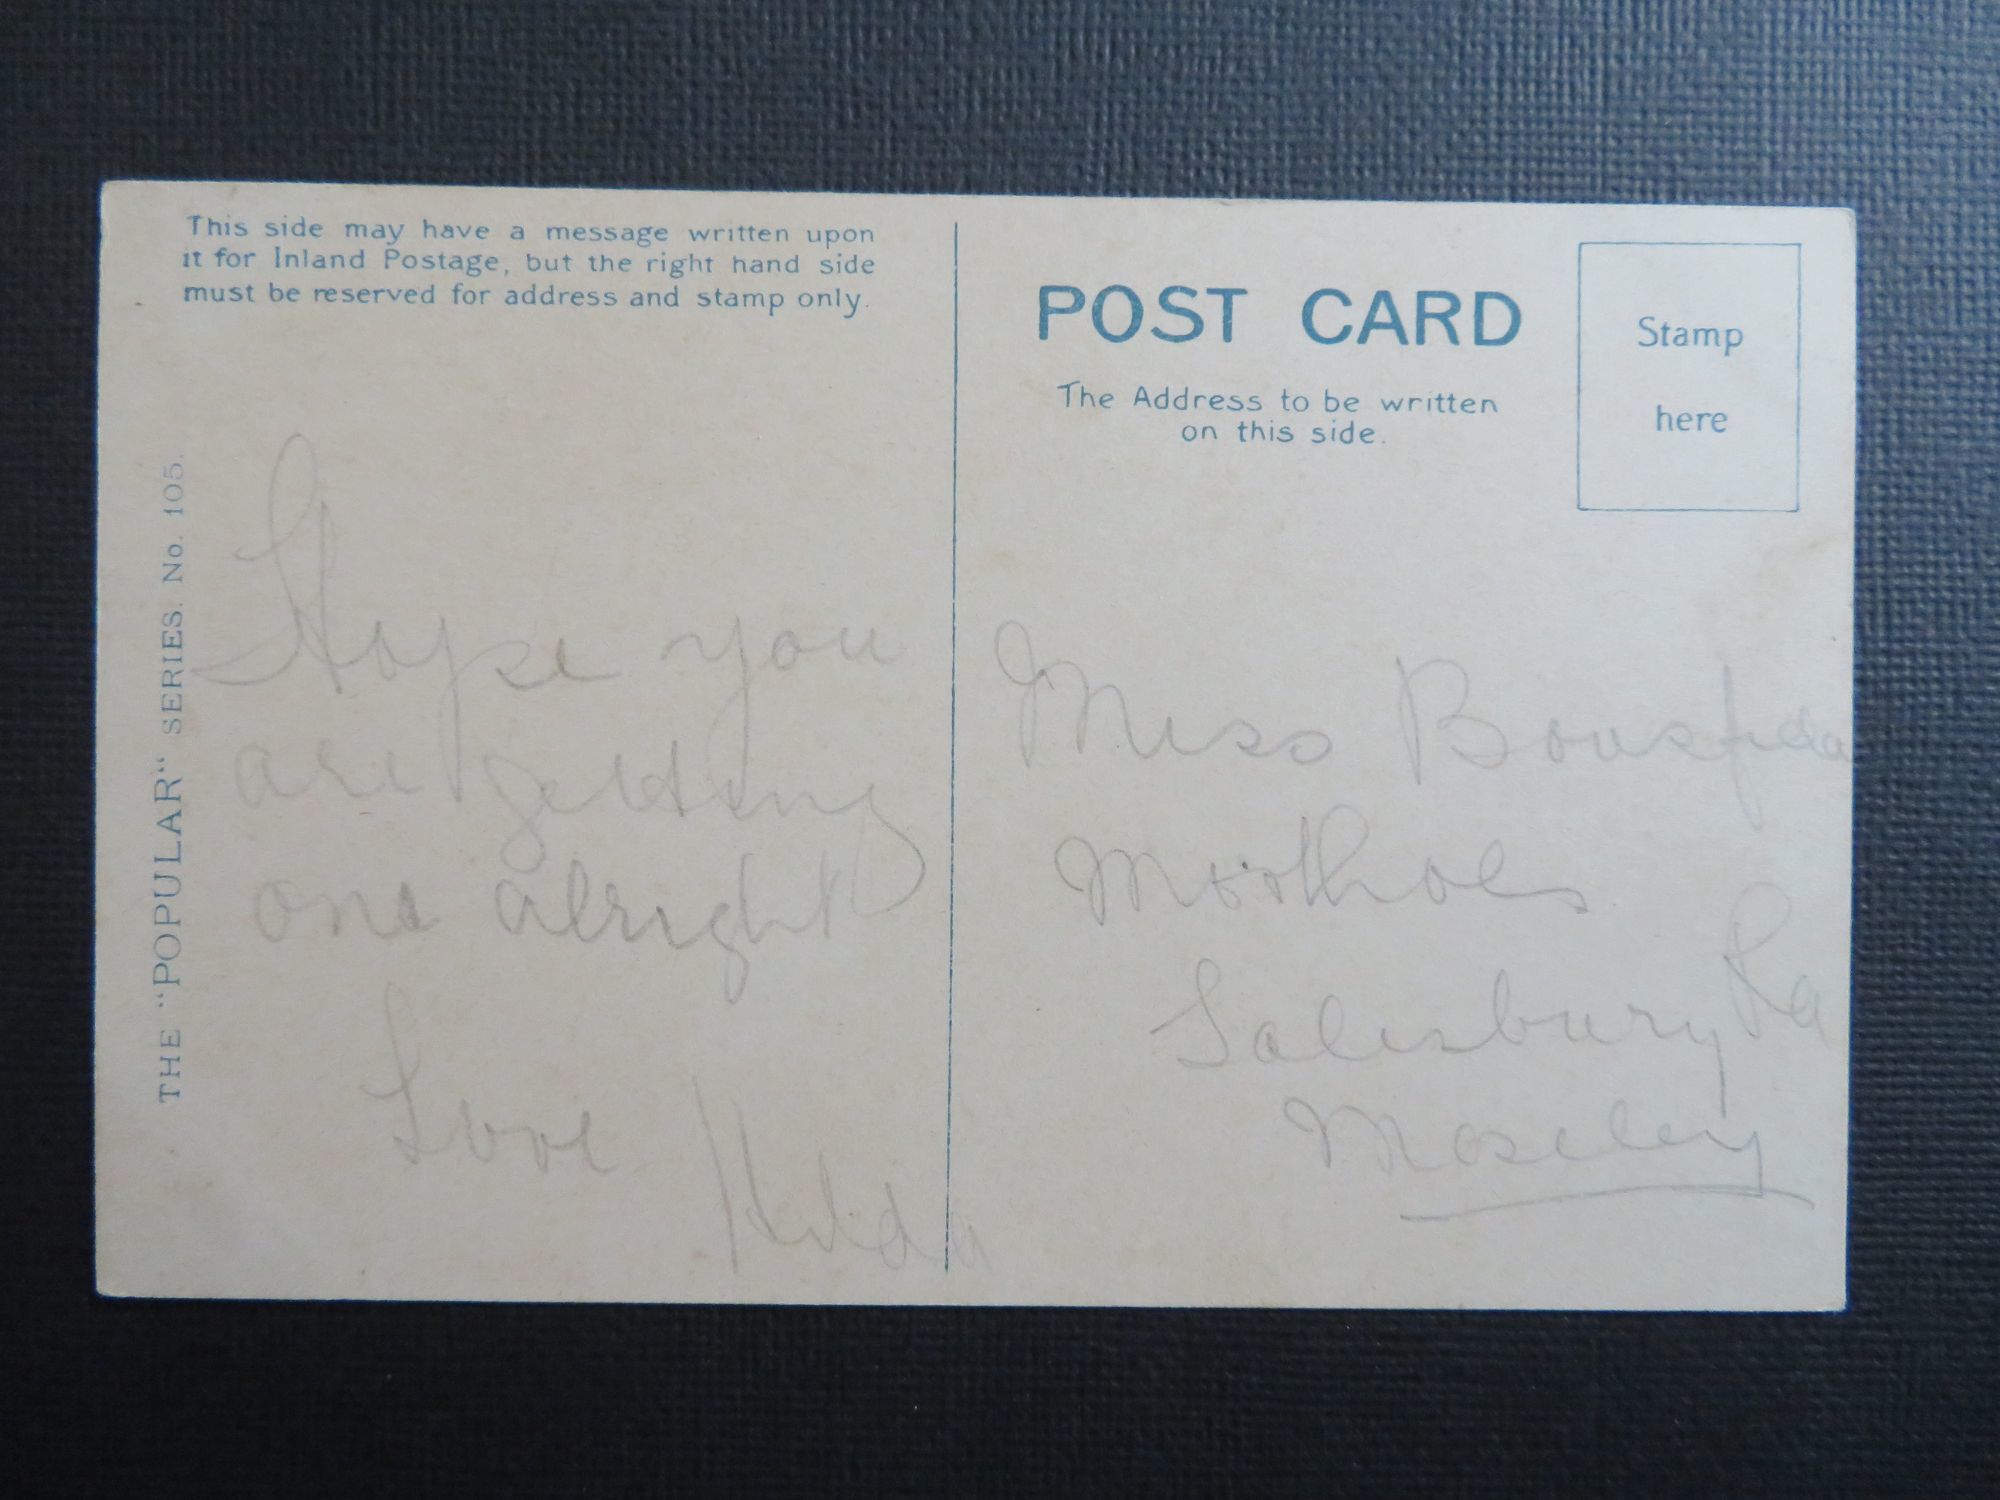 This side may have a message written upon
it for Inland Postage, but the right hand side
must be reserved for address and stamp only.
THE "POPULAR" SERIES. No. 105.
Hope you
are getting
one alright
Love Hilda
POST CARD
The Address to be written
on this side.
Stamp
here
Miss
Salisbury Rd
Moseley